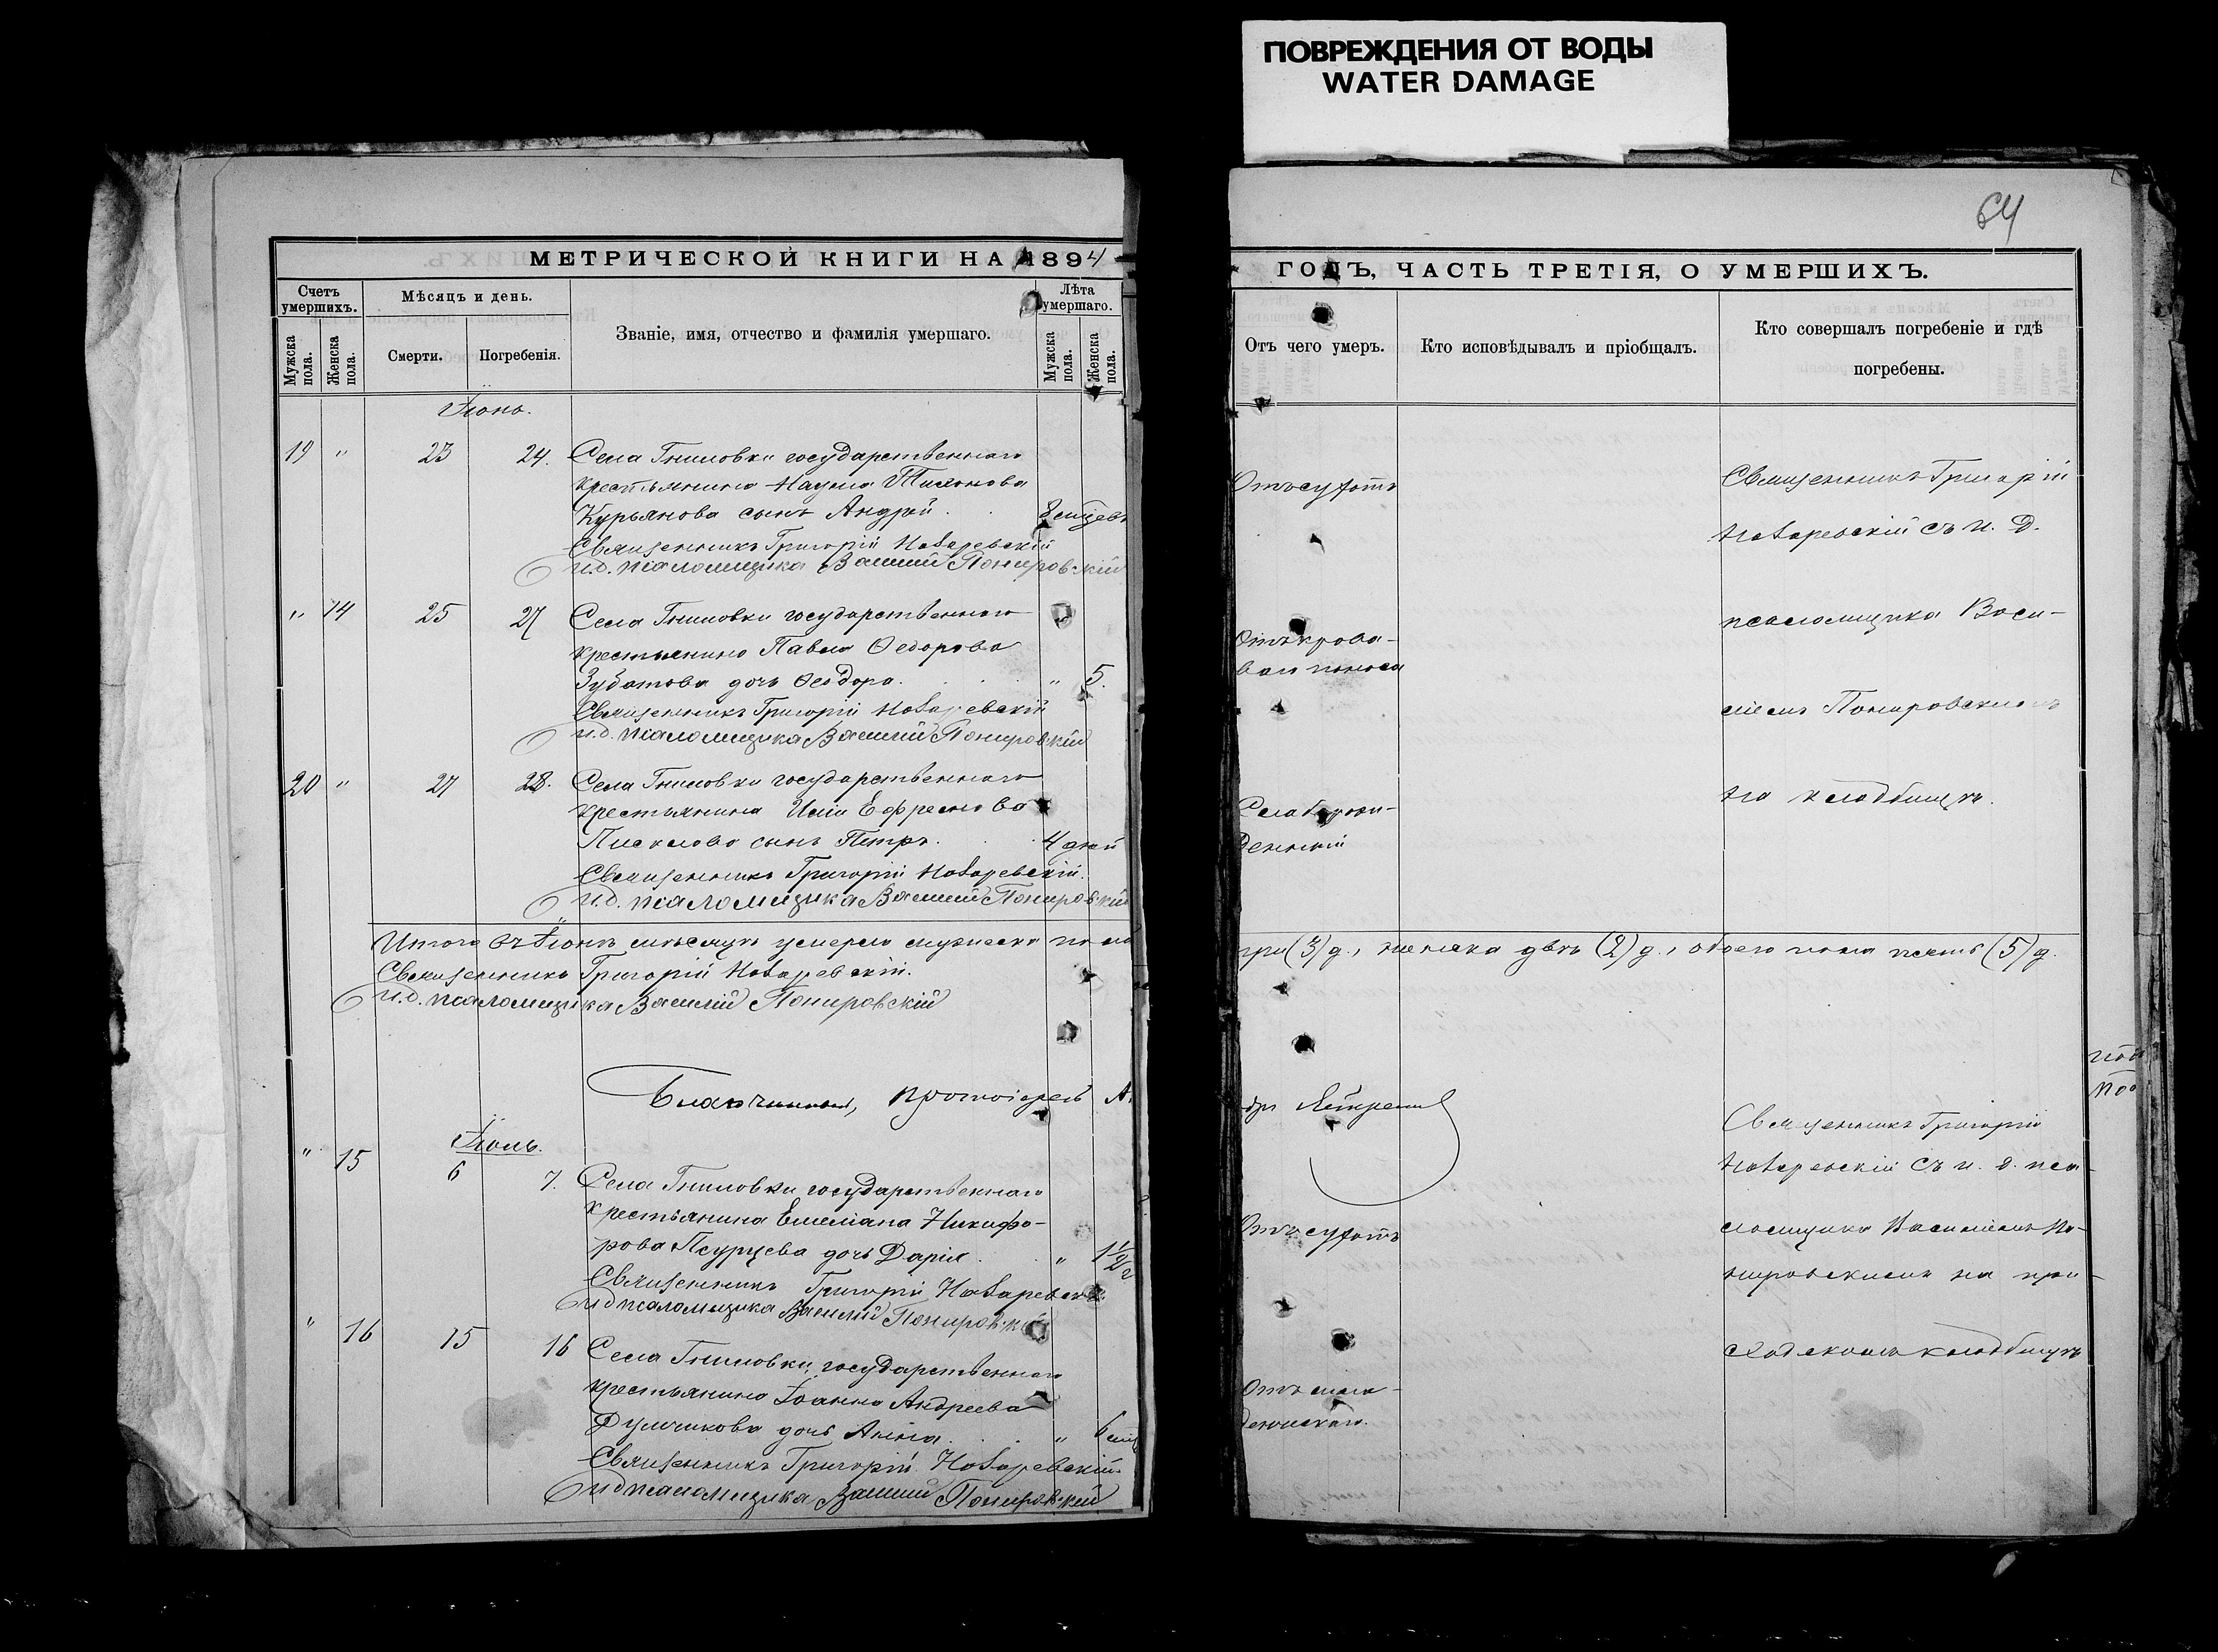 ПОВРЕЖДЕНИЯ ОТ ВОДЫ
WATER DAMAGE
64
МЕТРИЧЕСКОЙ КНИГИ НА 1894
Счетъ умершихъ.
Мужска пола.
Женска пола.
Мѣсяцъ и день.
Смерти.
Погребенія.
Званіе, имя, отчество и фамилія умершаго.
Лѣта умершаго.
Мужска пола.
Женска пола.
Іюнь.
19 " 23 24. Села Гниловки государственнаго
крестьянина Наума
Курьянова сынъ Андрей. 8 мѣсцевъ
Священникъ Григорій
и.д. псаломщика Василій Понировскій
" 14 25 27 Села Гниловки государственнаго
крестьянина Павла Ѳедорова
Зубатова дочь Ѳеодора. " 5.
Священникъ Григорій
и.д. псаломщика Василій Понировскій
20 " 27 28. Села Гниловки государственнаго
крестьянина Иліи Ефремова
сынъ Петръ. 4 дней
Священникъ Григорій
и.д. псаломщика Василій Понировскій
Итого въ Іюнѣ мѣсяцѣ умерло мужеска пола
Священникъ Григорій
и.д. псаломщика Василій Понировскій
Благочинный, протоіерей
Іюль.
" 15 6 7. Села Гниловки государственнаго
крестьянина Емеліана Никифо-
рова дочь Дарія. " 1 1/2 г
Священникъ Григорій
и д псаломщика Василій Понировскій
" 16 15 16 Села Гниловки государственнаго
крестьянина Іоанна Андреева
дочь Анна. " 6 мѣс
Священникъ Григорій
и д псаломщика Василій Понировскій
ГОДЪ, ЧАСТЬ ТРЕТІЯ, О УМЕРШИХЪ.
Отъ чего умеръ.
Кто исповѣдывалъ и пріобщалъ.
Кто совершалъ погребеніе и гдѣ погребены.
Отъ сухотъ
Священникъ Григорій
съ и. д.
псаломщика Васи-
ліемъ Понировскимъ
на кладбищѣ.
Отъ крова-
ваго поноса
три (3) д., женска двѣ (2) д., обоего пола пять (5) д.
Священникъ Григорій
съ и. д. пса-
ломщика Василіемъ По-
нировскимъ на при-
ходскомъ кладбищѣ
Отъ сухотъ
Отъ мла-
денческаго.